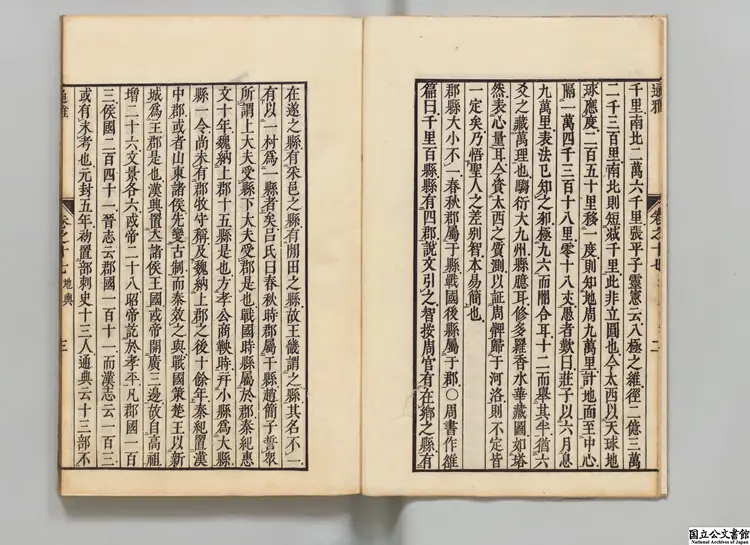 通雅 卷之十七 二
千里南北二萬六千里張平子靈憲云八極之維徑二億三萬
二千三百里南北則短減千里此非立圓也今太西以天球地
球應度二百五十里移一度則知地周九萬里計地面至中心
隔一萬四千三百十八里零十八丈愚者歎曰莊子以六月息
九萬里表法已知之邪極九六而閏合耳十二而舉其半猶六
爻之藏萬理也鄒衍大九州縣臆耳修多羅香水華藏圖如塔
然表心量耳今資太西之質測以証周髀歸于河洛則不定皆
一定矣乃悟聖人之差别智本易簡也
郡縣大小不一春秋郡屬于縣戰國後縣屬于郡○周書作雒
篇曰千里百縣縣有四郡說文引之智按周官有在鄉之縣有
在遂之縣有采邑之縣有閒田之縣故王畿謂之縣其名不一
有以一村爲一縣者矣吕氏曰春秋時郡屬于縣趙簡子誓衆
所謂上大夫受縣下大夫受郡是也戰國時縣屬於郡秦紀惠
文十年魏納上郡十五縣是也方孝公商鞅時幷小縣爲大縣
縣一令尚未有郡牧守稱及魏納上郡之後十餘年秦紀置漢
中郡或者山東諸侯先變古制而秦效之與戰國策楚王以新
城爲王郡是也漢興置大諸侯王國武帝開廣三邊故自高祖
增二十六文景各六武帝二十八昭帝一訖於孝平凡郡國一百
三侯國二百四十一晉志云郡國一百十一而漢志云一百三
或有未考也元封五年初置部刺史十三人通典云十三部不
通雅 卷之十七 地輿 三
国立公文書館
National Archives of Japan